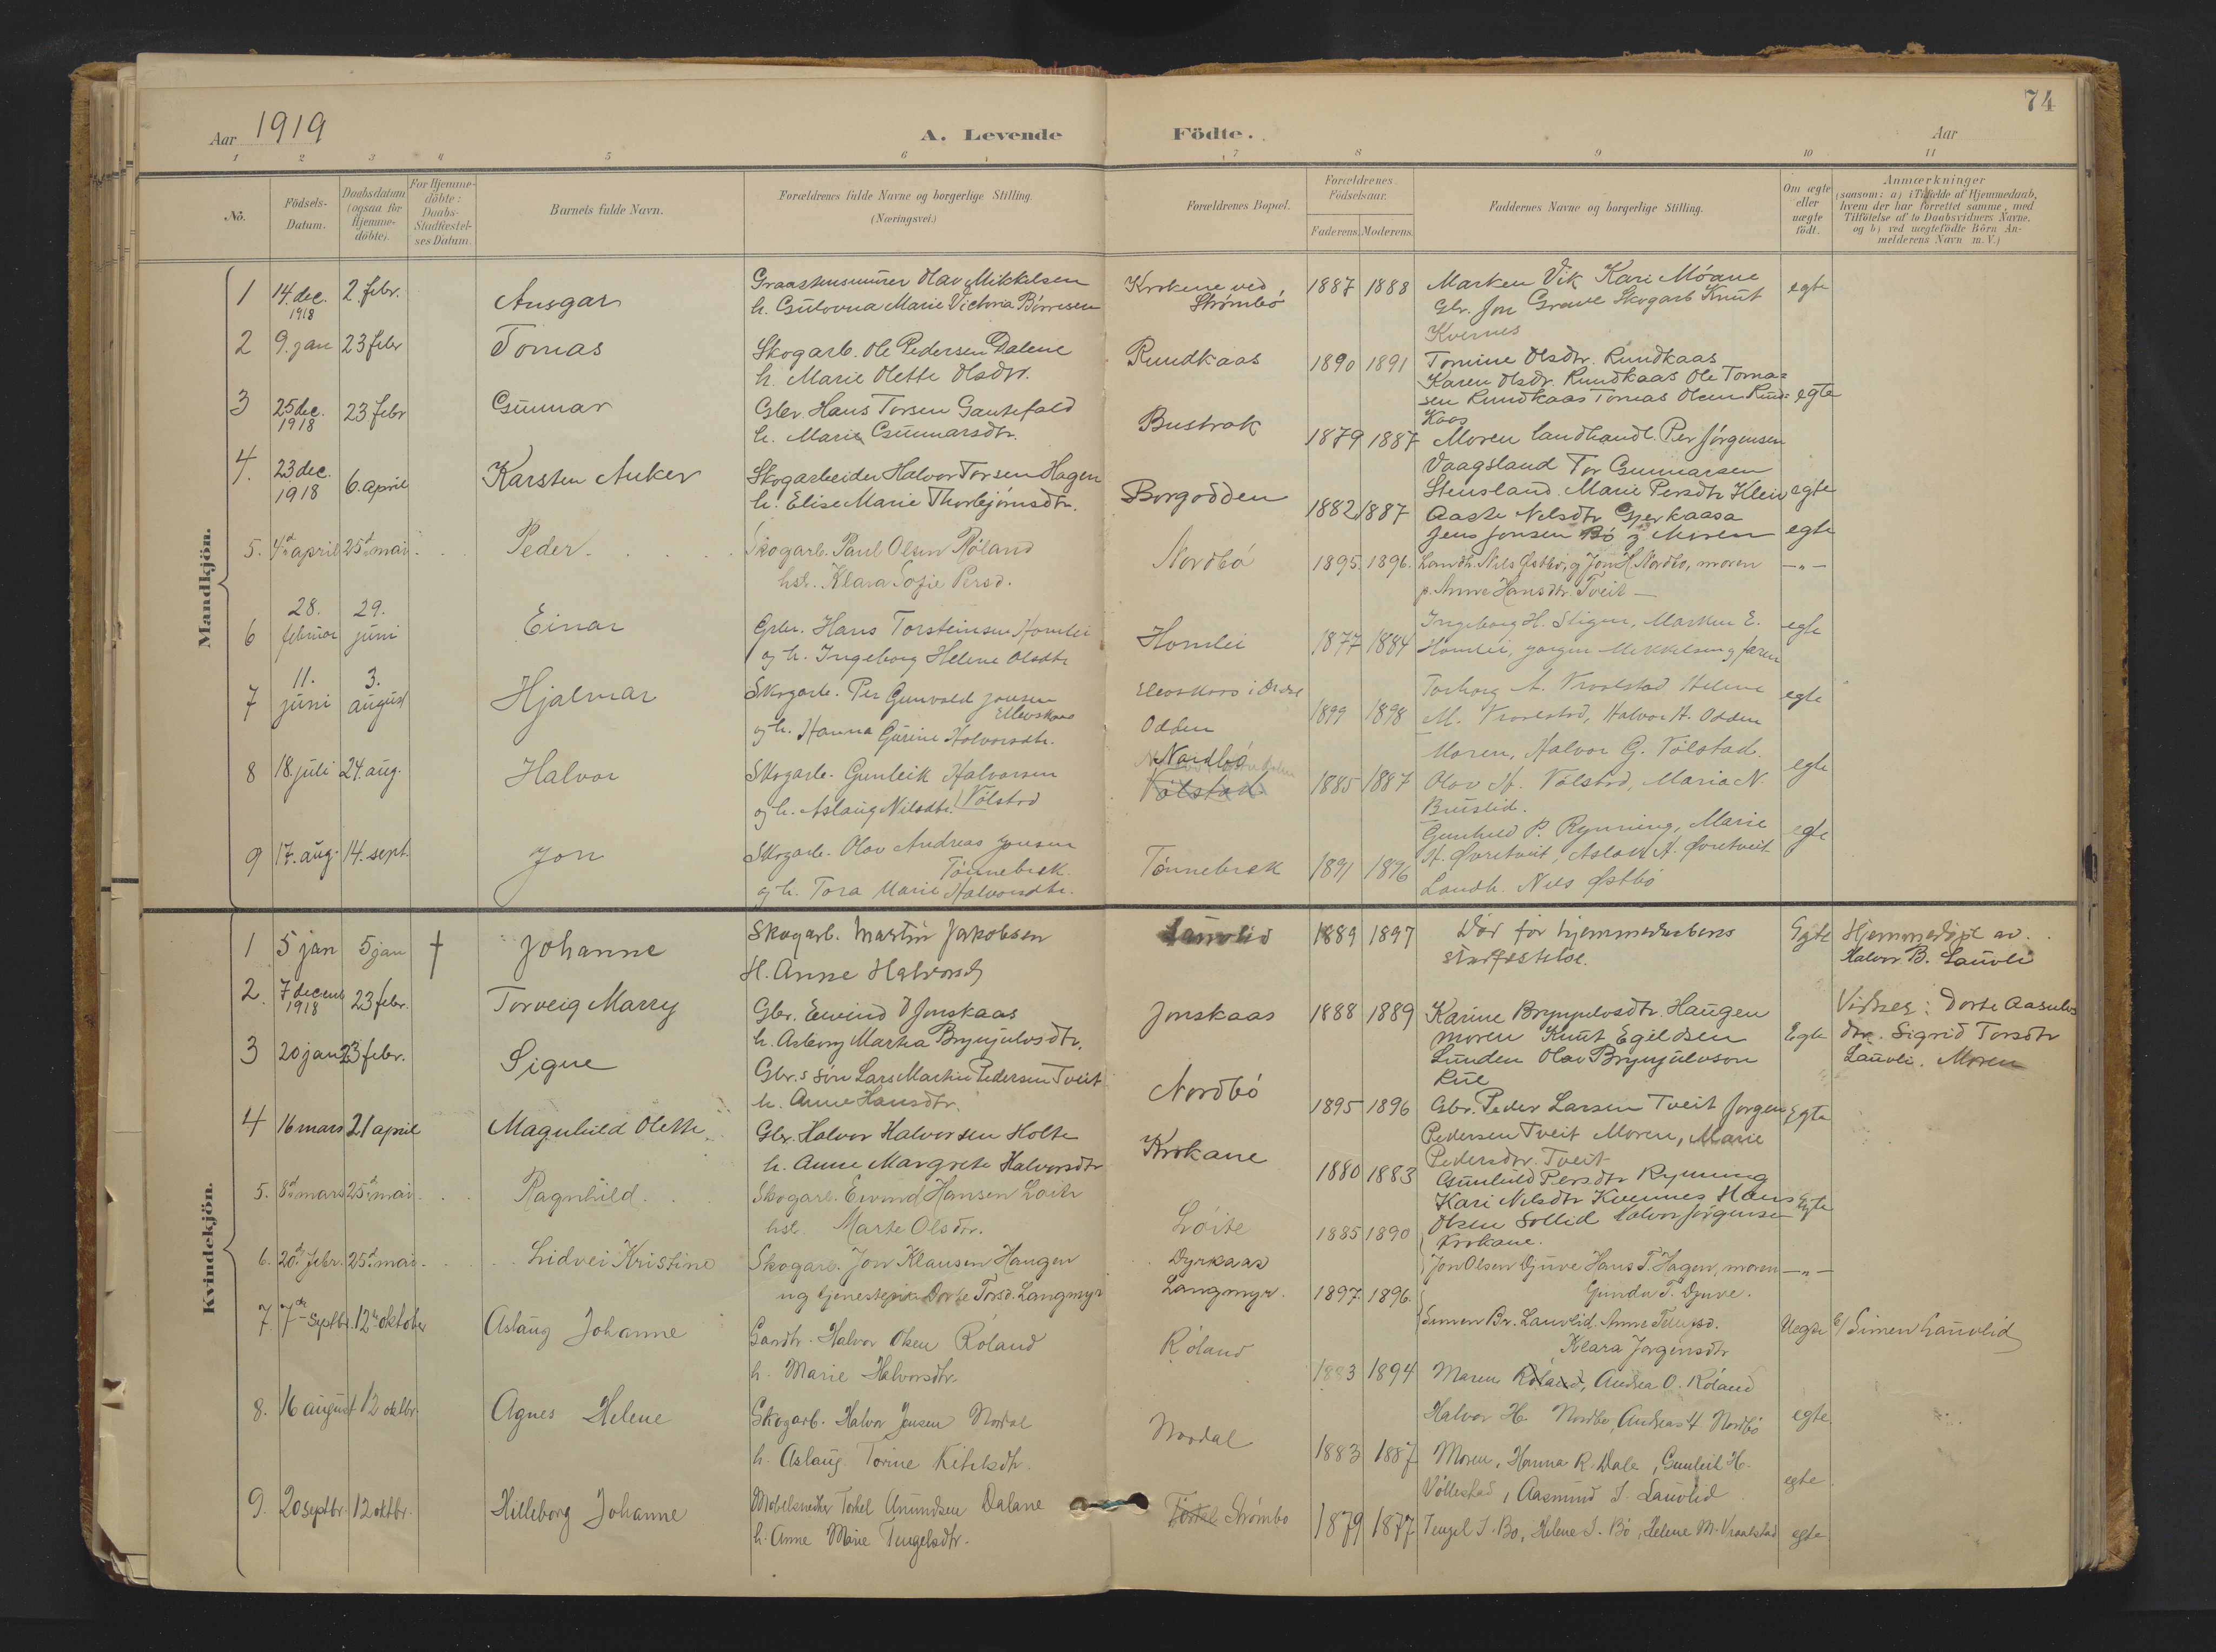 74
Aar 1919
A. Levende Födte.
Aar
1 2 3 4 5 6 7 8 9 10 11
No.
Födsels-
Datum.
Daabsdatum
(ogsaa for
Hjemme-
döbte).
For Hjemme-
döbte:
Daabs-
Stadfæstel-
ses Datum.
Barnets fulde Navn.
Forældrenes fulde Navne og borgerlige Stilling.
(Næringsvei.)
Forældrenes Bopæl.
Forældrenes
Födselsaar.
Faderens. Moderens.
Faddernes Navne og borgerlige Stilling.
Om ægte
eller
uægte
födt.
Anmærkninger
(saasom: a) i Tilfælde af Hjemmedaab,
hvem der har forrettet samme, med
Tilföielse af to Daabsvidners Navne,
og b) ved uægtefödte Börn An-
melderens Navn m. V.)
Mandkjön.
1 14. dec. 1918 2. febr. Ansgar
Olav Mikkelsen
h. Marie Victoria Börresen
Krokene ved
Strömbö
1887 1888
Marken Vik Kari Móane
Gbr. Jon Grave Skogarb Knut
Kvernes
egte
2 9. jan 23 febr Tomas
Skogarb. Ole Pedersen Dalene
h. Marie Olette Olsdtr.
Rundkaas
1890 1891
Tomine Olsdtr. Rundkaas
Karen Olsdr. Rundkaas Ole Toma=
sen Rundkaas Tomas Olsen Rund=
kaas
egte
3 25 dec. 1918 23 febr Gunnar
Gbr. Hans Torsen Gautefald
h. Marie Gunnarsdtr.
Bustrak
1879 1887
Moren Landhandl. Per Jörgensen
Vaagsland Tor Gunnarsen
Stensland. Marie Persdtr Kleiv
egte
4. 23 dec. 1918 6. april Karsten Anker
Skogarbeider Halvor Torsen Hagen
h. Elise Marie Thorbjörnsdtr.
Borgodden
1882 1887
Aaste Nilsdtr Gjerkaasa
Jens Jonsen Bö og Moren
egte
5. 4de april 25de mai Peder
Skogarb. Paul Olsen Röland
hst. Klara Sofie Persd.
Nordbö
1895. 1896.
Landh. Nils Østbö, og Jon H. Nordbö, moren
p. Anne Hansdtr. Tveit —
— " —
6 28. februar 29. juni Einar
Gbr. Hans Torsteinsen Homlei
og h. Ingeborg Helene Olsdtr
Homlei
1877 1884
Ingeborg H. Stigen, Marken E.
Homlei, Jørgen Mikkelsen og faren
egte
7 11. juni 3. august Hjalmar
Skogarb. Per Gunvald Jonsen
Ellevskaas
og h. Hanna Gurine Halvorsdtr.
Odden
1899 1898
Torborg A. Vraalstad Helene
M. Vraalstad, Halvor H. Odden
egte
8 18. juli 24. aug. Halvor
Skogarb. Gunleik Halvorsen
og h. Aslaug Nilsdtr. Völstad
Nordbö
Völstad
1885 1887
Moren, Halvor G. Völstad.
Olav H. Völstad, Maria N.
Buslid.
egte
9 17. aug. 14. sept. Jon
Skogarb. Olav Andreas Jonsen
Tönnebrek
og h. Tora Marie Halvorsdtr.
Tönnebrek
1891 1896
Gunhild P. Rynning, Marie
H. Øvretveit, Aslak A. Øvretveit
Landh. Nils Østbö
egte
Kvindekjön.
1 5 jan 5 jan † Johanne
Skogarb. Martin Jakobsen
H. Anne Halvorsd
Lauvlid
1889 1897
Död för hjemmedaabens
stadfæstelse.
Egte
Hjemmedöpt av
Halvor B. Lauvli
Vidner: Dorte Aasulvs
dtr. Sigrid Torsdtr
Lauvli. Moren
2. 7 decemb 1918 23 febr. Torveig Marry
Gbr. Eivind O Jonskaas
h. Asborg Marta Brynjulvsdtr.
Jonskaas
1888 1889
Karine Brynjulvsdtr. Haugen
moren Knut Egildsen
Lunden Olav Brynjulvson
Rui
Egte
3 20 jan 23 febr. Signe
Gbr.s sön Lars Martin Pedersen Tveit
h. Anne Hansdtr.
Nordbö
1895 1896
Gbr. Peder Larsen Tveit Jorgen
Pedersen Tveit Moren, Marie
Pedersdtr. Tveit
Egte
4 16 mars 21 april Magnhild Olette
Gbr. Halvor Halvorsen Holte
h. Anne Margrete Halvorsdtr
Krokane
1880 1883
Gunhild Persdtr Rynning
Kari Nilsdtr Kvernes Hans
Olsen Sollid Halvor Jörgensen
Krokane.
Egte
5. 8de mars 25de mai Ragnhild
Skogarb. Eivind Hansen Löite
hst. Marte Olsdtr.
Löite
1885 1890
Jon Olsen Djuve Hans T. Hagen, moren
Gunda T. Djuve.
— " —
6. 20de febr. 25de mai Lidvei Kristine
Skogarb. Jon Klausen Haugen
og tjenestepike Dorte Torsd. Langmyr
Dyrkaas
Langmyr.
1897. 1896.
Simen Br. Lauvlid. Anne
Klara Jørgensdtr
Uegte
b/ Simen Lauvlid
7. 7de Septbr. 12te oktober Aslaug Johanne
Halvor Olsen Röland
h. Marie Halvorsdtr.
Röland
1883 1894
Maren Röland, Andrea O. Röland
Halvor H. Nordbö, Andreas H. Nordbö
egte
8. 16 august 12 oktbr. Agnes Helene
Skogarb. Halvor Jensen Nordal
h. Aslaug Torine Kitilsdtr.
Nordal
1883 1887
Moren, Hanna R. Dale, Gunleik H.
Völlestad, Aasmund J. Lauvlid
egte
9. 20 septbr. 12 oktbr. Hilleborg Johanne
Möbelsnedker Torkel Anundsen Dalane
h. Anne Marie Tengelsdtr.
Strömbo
1879 1877
Tengel J. Bo, Helene J. Bö, Helene M. Vraalstad
egte